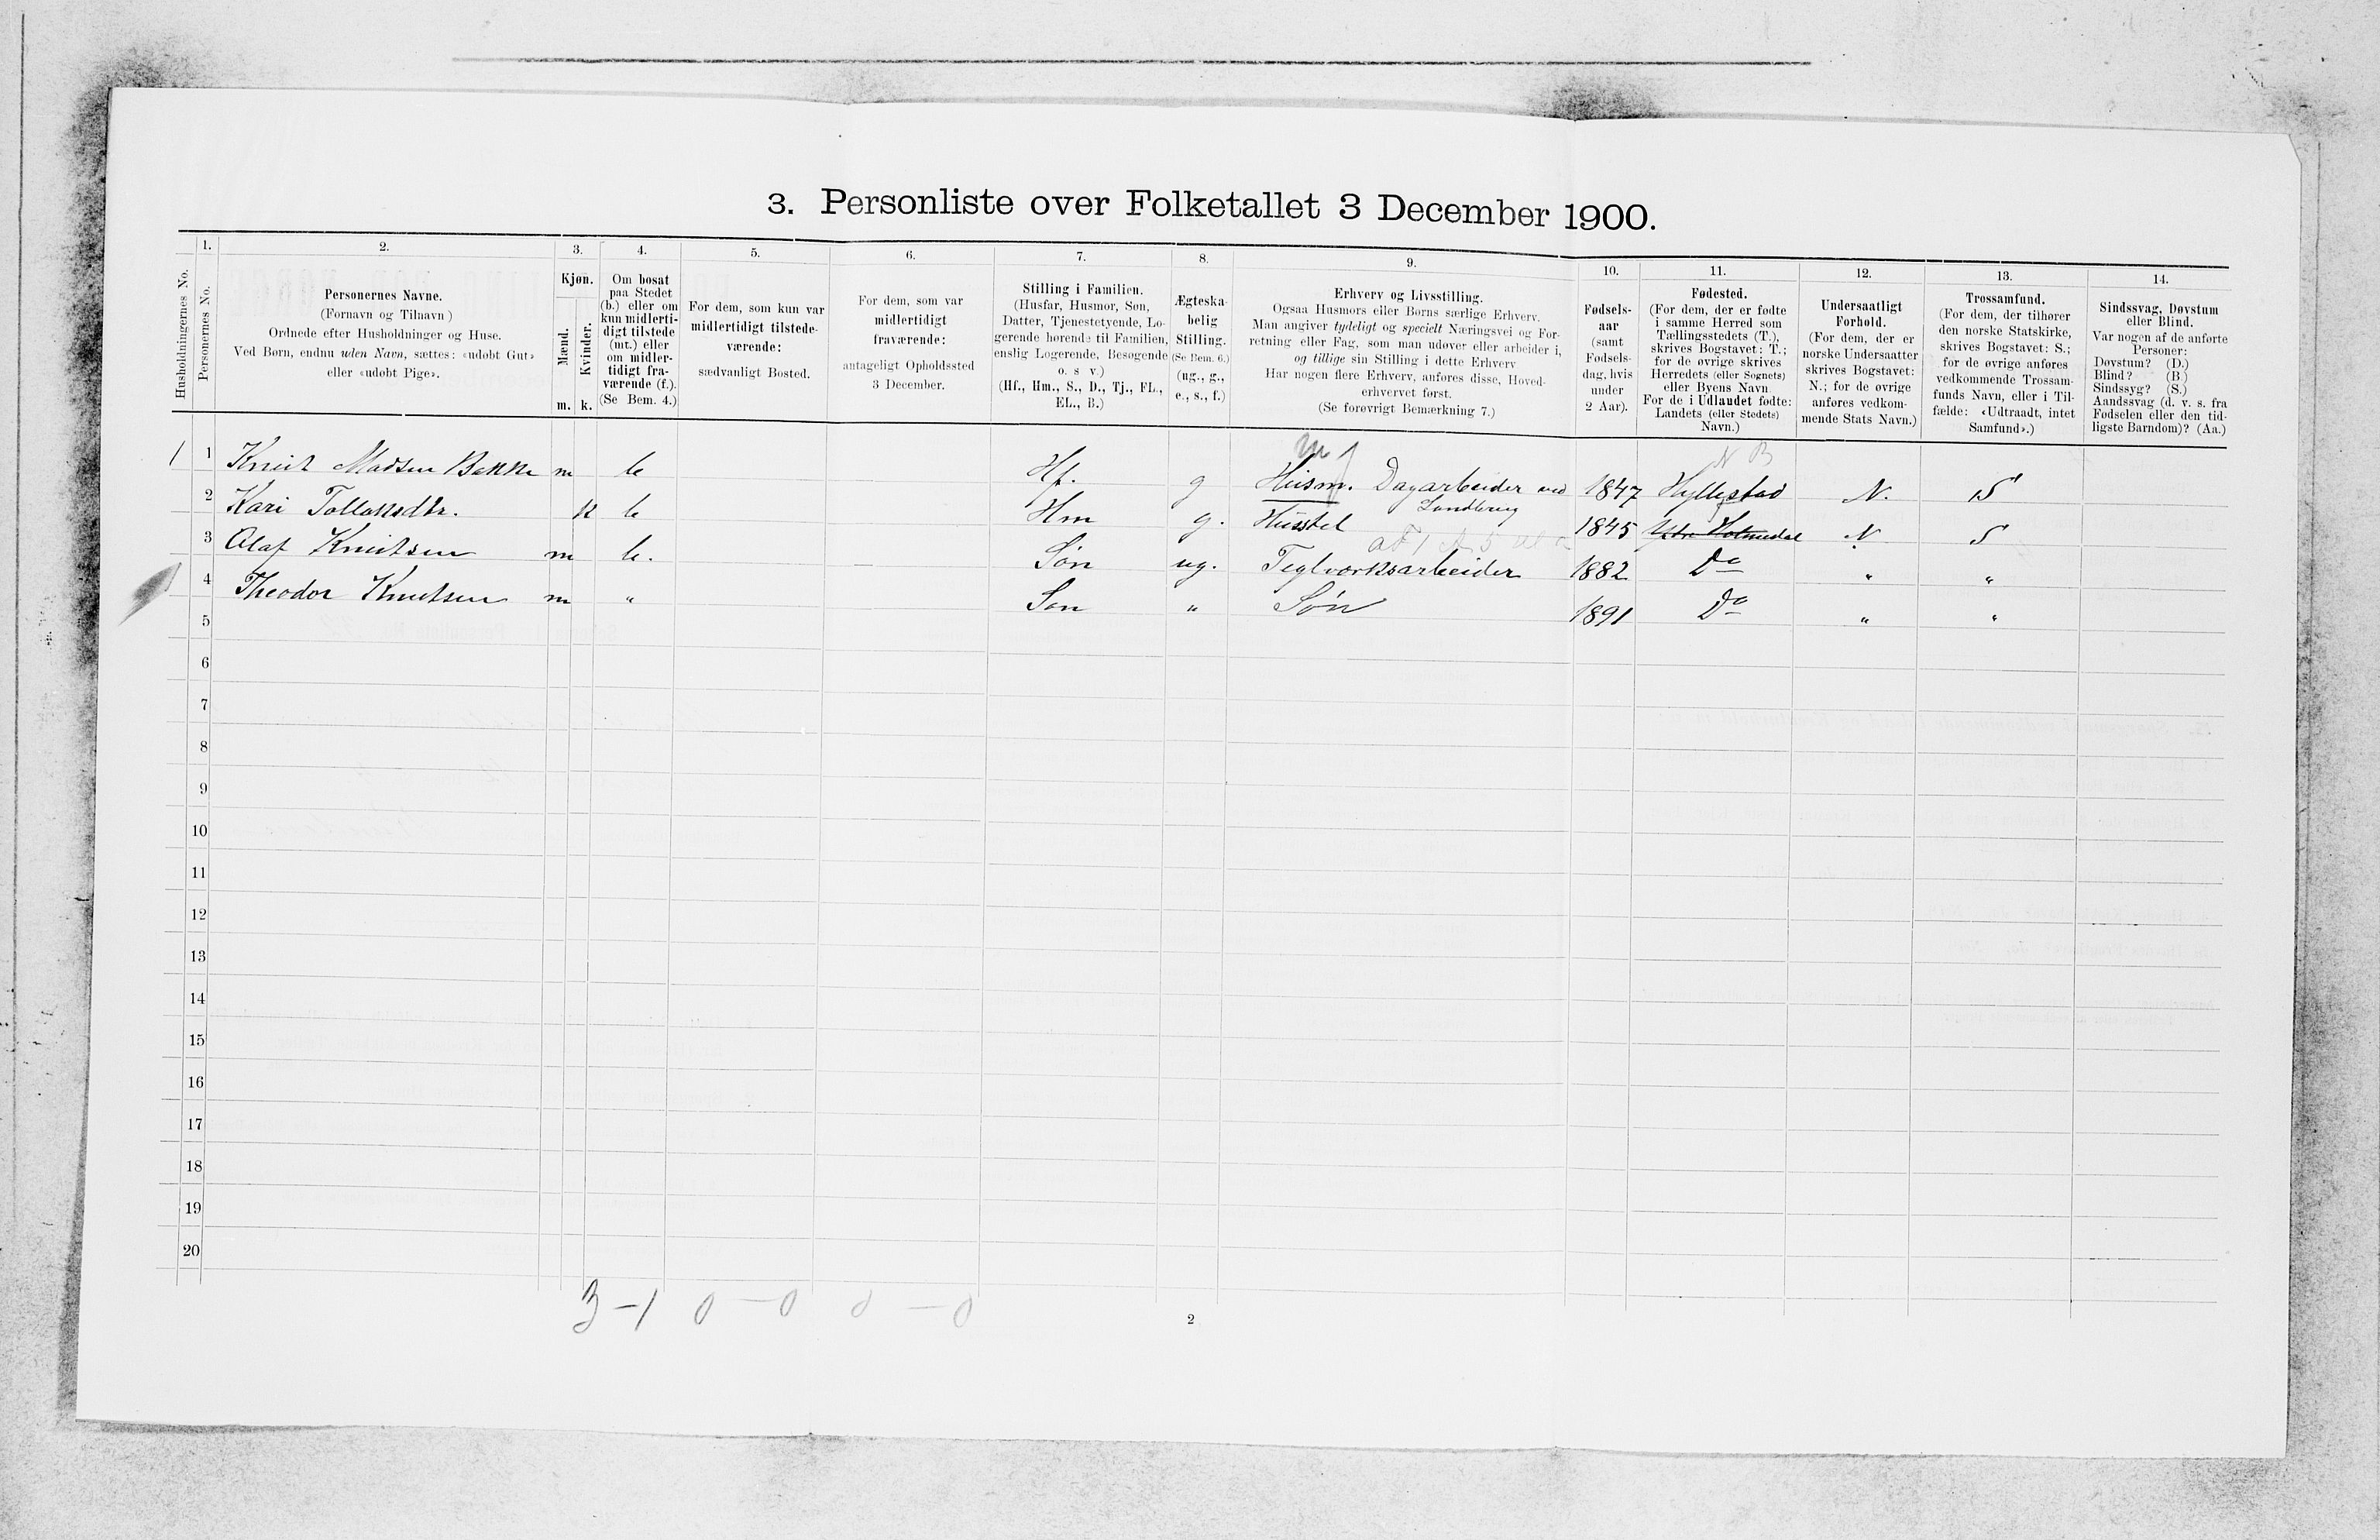 3. Personliste over Folketallet 3 December 1900.
Husholdningernes No.
1.
Personernes No.
2.
Personernes Navne.
(Fornavn og Tilnavn)
Ordnede efter Husholdninger og Huse.
Ved Børn, endnu uden Navn, sættes: «udøbt Gut»
eller «udøbt Pige».
3.
Kjøn.
Mænd.
Kvinder.
m. k.
4.
Om bosat
paa Stedet
(b.) eller om
kun midlerti-
digt tilstede
(mt.) eller
om midler-
tidigt fra-
værende (f.).
(Se Bem. 4.)
5.
For dem, som kun var
midlertidigt tilstede-
værende:
sædvanligt Bosted.
6.
For dem, som var
midlertidigt
fraværende:
antageligt Opholdssted
3 December.
7.
Stilling i Familien.
(Husfar, Husmor, Søn,
Datter, Tjenestetyende, Lo-
gerende hørende til Familien,
enslig Logerende, Besøgende
o. s v.)
(Hf., Hm., S., D., Tj., FL.,
EL., B.)
8.
Ægteska-
belig
Stilling.
(Se Bem. 6.)
(ug., g.,
e., s., f.)
9.
Erhverv og Livsstilling.
Ogsaa Husmors eller Børns særlige Erhverv.
Man angiver tydeligt og specielt Næringsvei og For-
retning eller Fag, som man udøver eller arbeider i,
og tillige sin Stilling i dette Erhverv
Har nogen flere Erhverv, anføres disse, Hoved-
erhvervet først.
(Se forøvrigt Bemærkning 7.)
10.
Fødsels-
aar
(samt
Fødsels-
dag, hvis
under
2 Aar).
11.
Fødested.
(For dem, der er fødte
i samme Herred som
Tællingsstedets (T.),
skrives Bogstavet: T.;
for de øvrige skrives
Herredets (eller Sognets)
eller Byens Navn.
For de i Udlandet fødte:
Landets (eller Stedets)
Navn.)
12.
Undersaatligt
Forhold.
(For dem, der er
norske Undersaatter
skrives Bogstavet:
N.; for de øvrige
anføres vedkom-
mende Stats Navn.)
13.
Trossamfund.
(For dem, der tilhører
den norske Statskirke,
skrives Bogstavet: S.;
for de øvrige anføres
vedkommende Trossam-
funds Navn, eller i Til-
fælde: «Udtraadt, intet
Samfund».)
14.
Sindssvag, Døvstum
eller Blind.
Var nogen af de anførte
Personer:
Døvstum? (D.)
Blind? (B.)
Sindssyg? (S.)
Aandssvag (d. v. s. fra
Fødselen eller den tid-
ligste Barndom)? (Aa.)
N B
1 1 Knut Madsen Bakke m b Hf. g Husm. Dagarbeider ved 1847 Hyllestad N. S
Landbrug
2 Kari Tollaksdtr. k b Hm g. Husstel 1845 Ytre Holmedal N S
3 Olaf Knutsen m b. Søn ug. Teglværksarbeider 1882 Do " "
4 Theodor Knutsen m " Søn " Søn 1891 Do " "
5
6
7
8
9
10
11
12
13
14
15
16
17
18
19
20
3 - 1 0 - 0 0 - 0
2